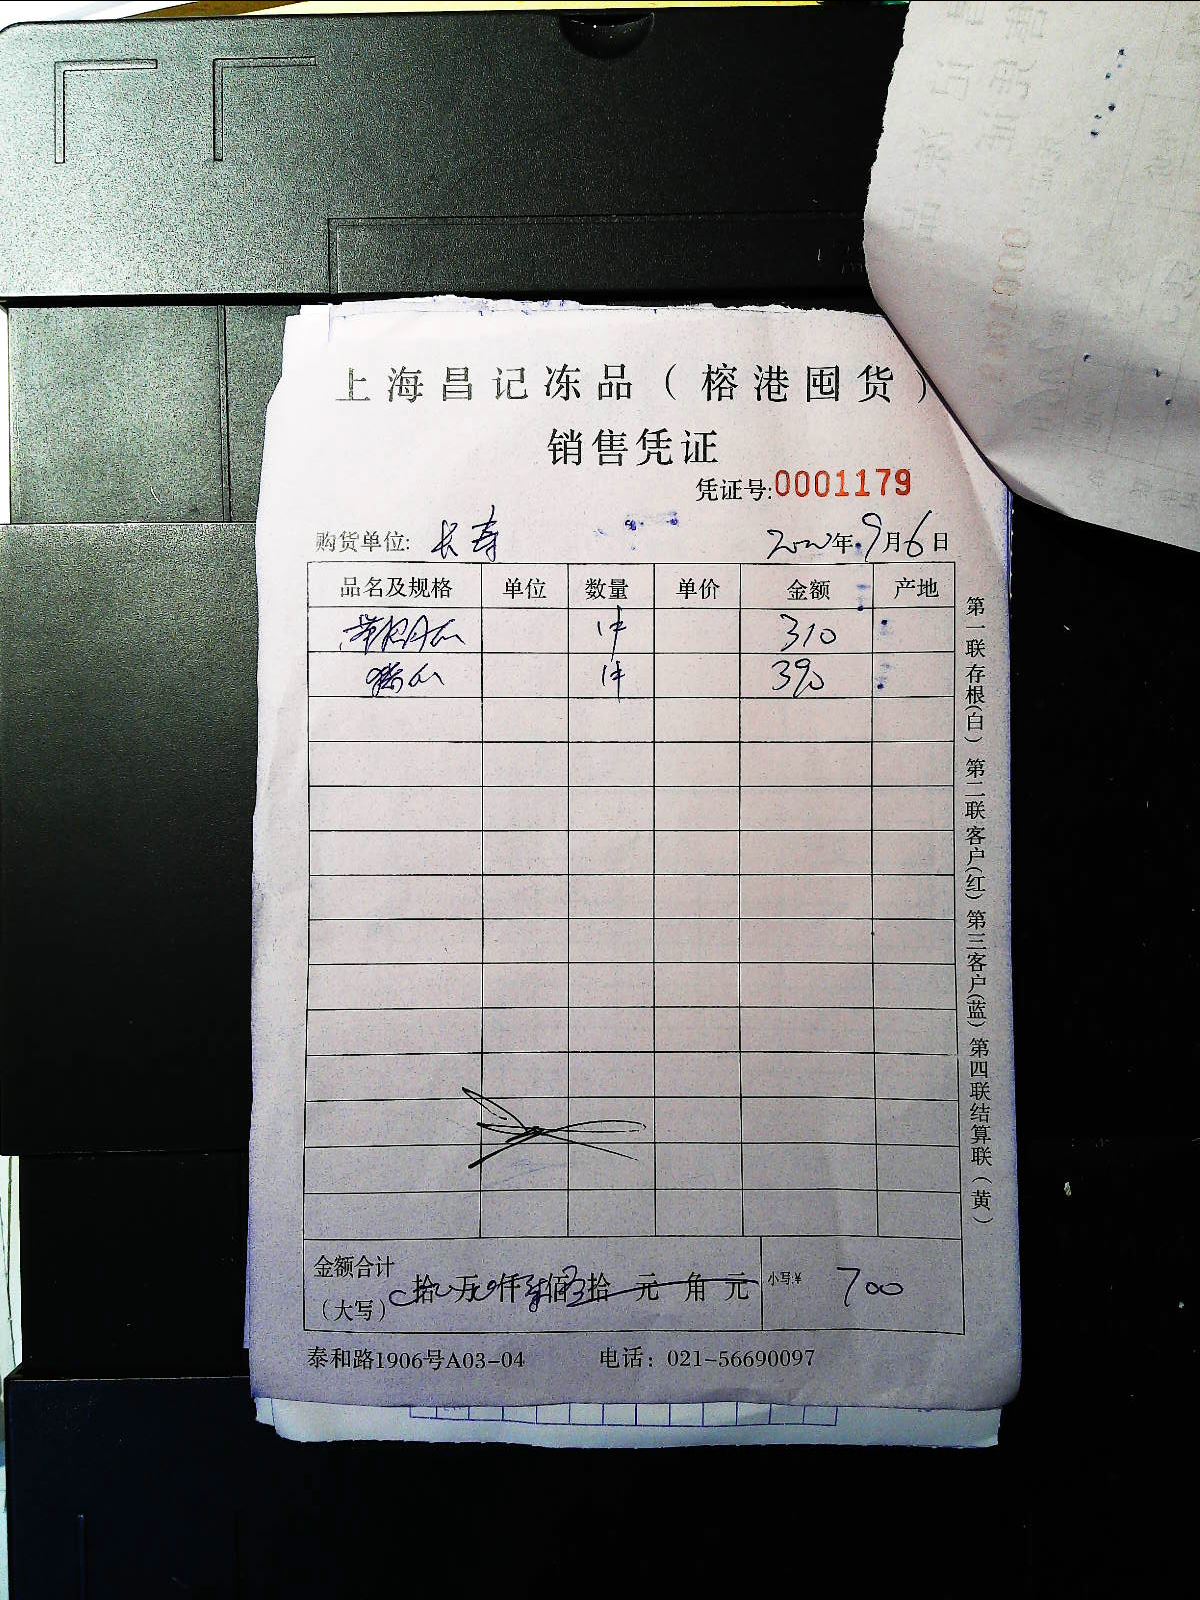 上海昌记冻品（榕港囤货）
销售凭证
凭证号:0001179
购货单位: 长寿 年9月6日
品名及规格 单位 数量 单价 金额 产地
1件 310
1件 390
金额合计（大写） 拾 万 仟 佰 拾 元 角 元 小写:¥ 700
泰和路1906号A03-04 电话：021-56690097
第一联存根(白) 第二联客户(红) 第三客户(蓝) 第四联结算联(黄)